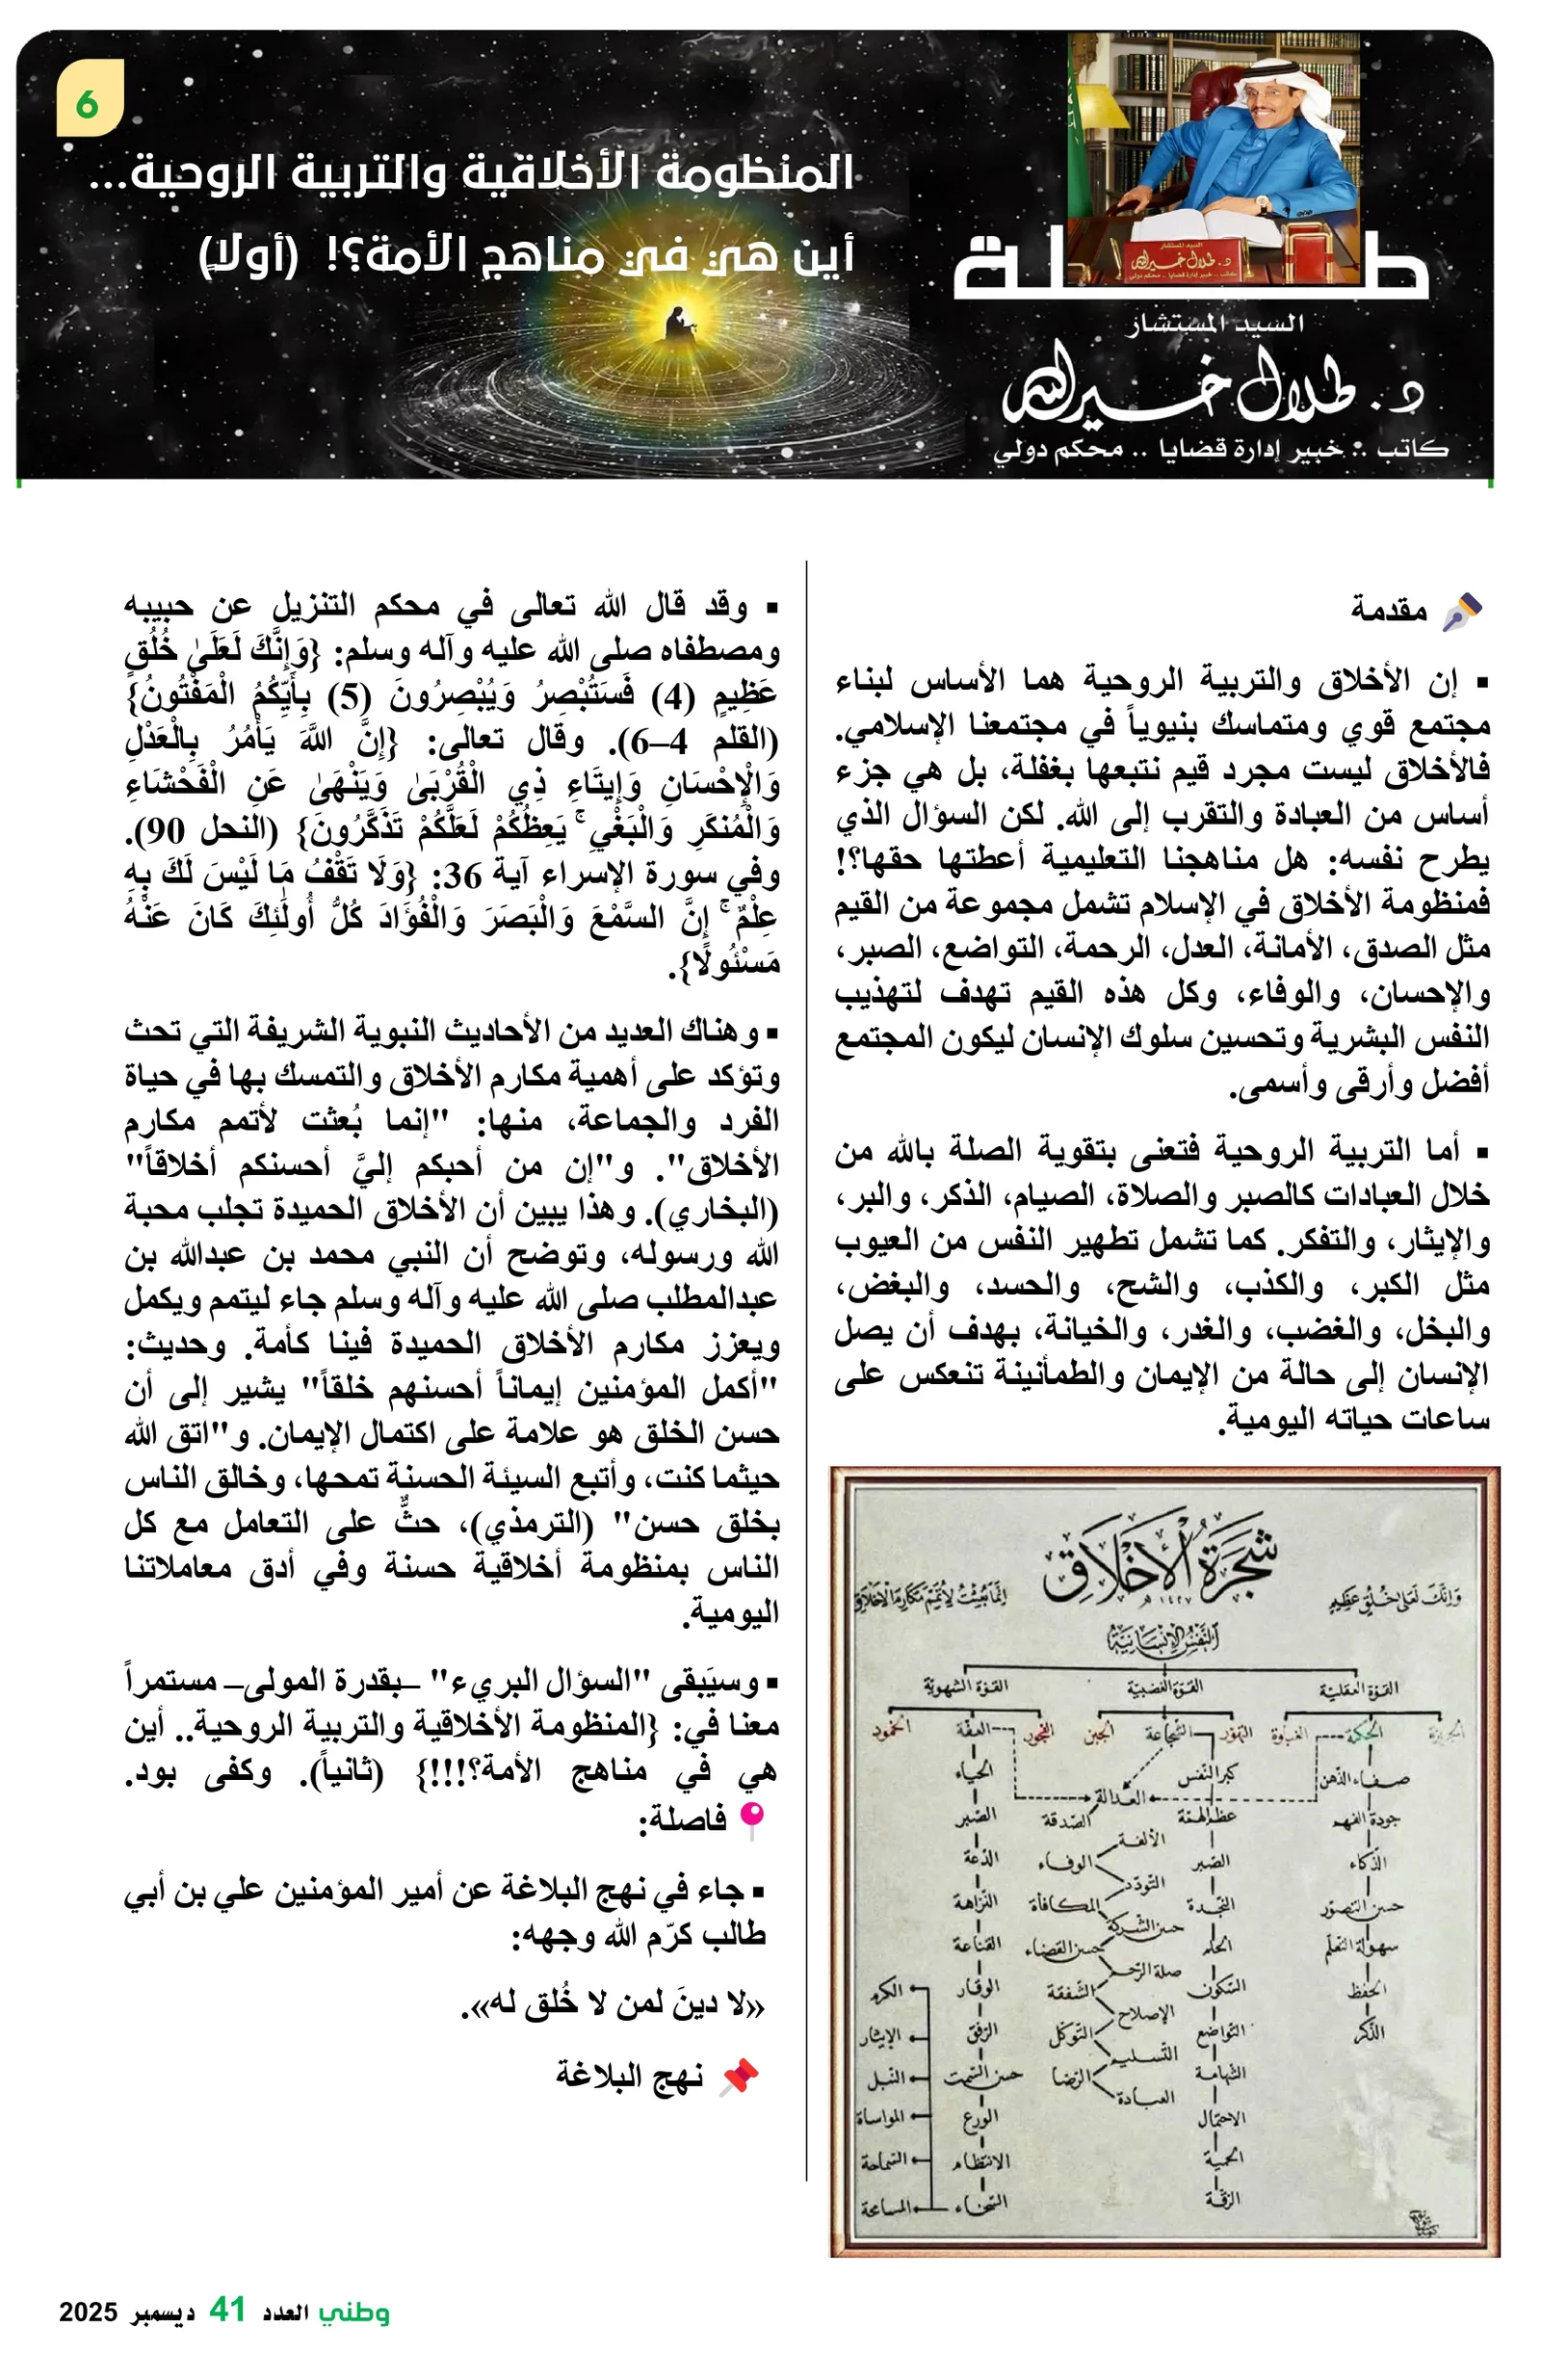 6
المنظومة الأخلاقية والتربية الروحية...
أين هي في مناهج الأمة؟! (أولاً)
طلة
السيد المستشار
د. طلال خيرالله
كاتب .: خبير إدارة قضايا .. محكم دولي
السيد المستشار
د. طلال خيرالله
مقدمة
▪ إن الأخلاق والتربية الروحية هما الأساس لبناء
مجتمع قوي ومتماسك بنيوياً في مجتمعنا الإسلامي.
فالأخلاق ليست مجرد قيم نتبعها بغفلة، بل هي جزء
أساس من العبادة والتقرب إلى الله. لكن السؤال الذي
يطرح نفسه: هل مناهجنا التعليمية أعطتها حقها؟!
فمنظومة الأخلاق في الإسلام تشمل مجموعة من القيم
مثل الصدق، الأمانة، العدل، الرحمة، التواضع، الصبر،
والإحسان، والوفاء، وكل هذه القيم تهدف لتهذيب
النفس البشرية وتحسين سلوك الإنسان ليكون المجتمع
أفضل وأرقى وأسمى.
▪ أما التربية الروحية فتعنى بتقوية الصلة بالله من
خلال العبادات كالصبر والصلاة، الصيام، الذكر، والبر،
والإيثار، والتفكر. كما تشمل تطهير النفس من العيوب
مثل الكبر، والكذب، والشح، والحسد، والبغض،
والبخل، والغضب، والغدر، والخيانة، بهدف أن يصل
الإنسان إلى حالة من الإيمان والطمأنينة تنعكس على
ساعات حياته اليومية.
شجرة الأخلاق
١٤٢٧ هـ
وَإِنَّكَ لَعَلى خُلُقٍ عَظِيمٍ
إِنَّمَا بُعِثْتُ لِأُتَمِّمَ مَكَارِمَ الأَخْلَاقِ
النفس الإنسانية
القوة العقلية القوة الغضبية القوة الشهوية
الجربزة الحكمة الغباوة التهور الشجاعة الجبن الفجور العفة الخمود
صفاء الذهن كبر النفس الحياء
العدالة
جودة الفهم عظم الهمة الصدقة الصبر
الألفة
الذكاء الصبر الوفاء الدعة
التودد
حسن التصور النجدة المكافأة النزاهة
حسن الشركة
سهولة التعلم الحلم حسن القضاء القناعة
صلة الرحم
الحفظ السكون الشفقة الوقار الكرم
الإصلاح
الذكر التواضع التوكل الرفق الإيثار
التسليم
الشهامة الرضا حسن السمت النبل
العبادة
الاحتمال الورع المواساة
الحمية الانتظام السماحة
الرقة السخاء المسامحة
▪ وقد قال الله تعالى في محكم التنزيل عن حبيبه
ومصطفاه صلى الله عليه وآله وسلم: {وَإِنَّكَ لَعَلَىٰ خُلُقٍ
عَظِيمٍ (4) فَسَتُبْصِرُ وَيُبْصِرُونَ (5) بِأَيِّكُمُ الْمَفْتُونُ}
(القلم 4–6). وقال تعالى: {إِنَّ اللَّهَ يَأْمُرُ بِالْعَدْلِ
وَالْإِحْسَانِ وَإِيتَاءِ ذِي الْقُرْبَىٰ وَيَنْهَىٰ عَنِ الْفَحْشَاءِ
وَالْمُنكَرِ وَالْبَغْيِ ۚ يَعِظُكُمْ لَعَلَّكُمْ تَذَكَّرُونَ} (النحل 90).
وفي سورة الإسراء آية 36: {وَلَا تَقْفُ مَا لَيْسَ لَكَ بِهِ
عِلْمٌ ۚ إِنَّ السَّمْعَ وَالْبَصَرَ وَالْفُؤَادَ كُلُّ أُولَٰئِكَ كَانَ عَنْهُ
مَسْئُولًا}.
▪ وهناك العديد من الأحاديث النبوية الشريفة التي تحث
وتؤكد على أهمية مكارم الأخلاق والتمسك بها في حياة
الفرد والجماعة، منها: "إنما بُعثت لأتمم مكارم
الأخلاق". و"إن من أحبكم إليَّ أحسنكم أخلاقاً"
(البخاري). وهذا يبين أن الأخلاق الحميدة تجلب محبة
الله ورسوله، وتوضح أن النبي محمد بن عبدالله بن
عبدالمطلب صلى الله عليه وآله وسلم جاء ليتمم ويكمل
ويعزز مكارم الأخلاق الحميدة فينا كأمة. وحديث:
"أكمل المؤمنين إيماناً أحسنهم خلقاً" يشير إلى أن
حسن الخلق هو علامة على اكتمال الإيمان. و"اتق الله
حيثما كنت، وأتبع السيئة الحسنة تمحها، وخالق الناس
بخلق حسن" (الترمذي)، حثٌّ على التعامل مع كل
الناس بمنظومة أخلاقية حسنة وفي أدق معاملاتنا
اليومية.
▪ وسيَبقى "السؤال البريء" –بقدرة المولى– مستمراً
معنا في: {المنظومة الأخلاقية والتربية الروحية.. أين
هي في مناهج الأمة؟!!!} (ثانياً). وكفى بود.
فاصلة:
▪ جاء في نهج البلاغة عن أمير المؤمنين علي بن أبي
طالب كرّم الله وجهه:
«لا دينَ لمن لا خُلق له».
نهج البلاغة
وطني العدد 41 ديسمبر 2025